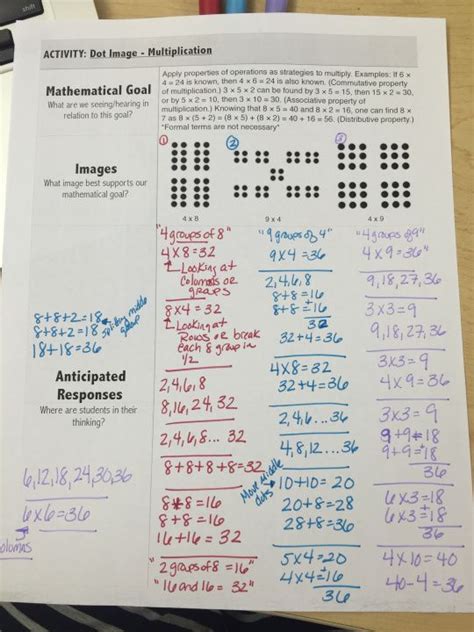 shift
ACTIVITY: Dot Image - Multiplication
Mathematical Goal
What are we seeing/hearing in
relation to this goal?
Apply properties of operations as strategies to multiply. Examples: If 6 ×
4 = 24 is known, then 4 × 6 = 24 is also known. (Commutative property
of multiplication.) 3 × 5 × 2 can be found by 3 × 5 = 15, then 15 × 2 = 30,
or by 5 × 2 = 10, then 3 × 10 = 30. (Associative property of
multiplication.) Knowing that 8 × 5 = 40 and 8 × 2 = 16, one can find 8 ×
7 as 8 × (5 + 2) = (8 × 5) + (8 × 2) = 40 + 16 = 56. (Distributive property.)
*Formal terms are not necessary*
Images
What image best supports our
mathematical goal?
1
2
3
4 x 8
9 x 4
4 x 9
"4 groups of 8"
4×8=32
Looking at
Columns or
groups
8×4=32
Looking at
Rows or break
each 8 group in
1/2
2,4,6,8
8,16,24,32
2,4,6,8... 32
8+8+8+8=32
8+8=16
8+8=16
16+16=32
"2 groups of 8 = 16"
"16 and 16 = 32"
"9 groups of 4"
9×4=36
2,4,6,8
8+8=16
8+8=16
32
32+4=36
4×8=32
32+4=36
2,4,6...36
4,8,12...36
Move Middle
dots
10+10=20
20+8=28
28+8=36
5×4=20
4×4=16
36
"4 groups of 9"
4×9=36"
9,18,27,36
3×3=9
9,18,27,36
3×3=9
4×9=36
3×3=9
9+9=18
9+9=18
36
6×3=18
6×3=18
36
4×10=40
40-4=36
8+8+2=18
8+8+2=18
18+18=36
middle
group
Anticipated
Responses
Where are students in their
thinking?
6,12,18,24,30,36
6×6=36